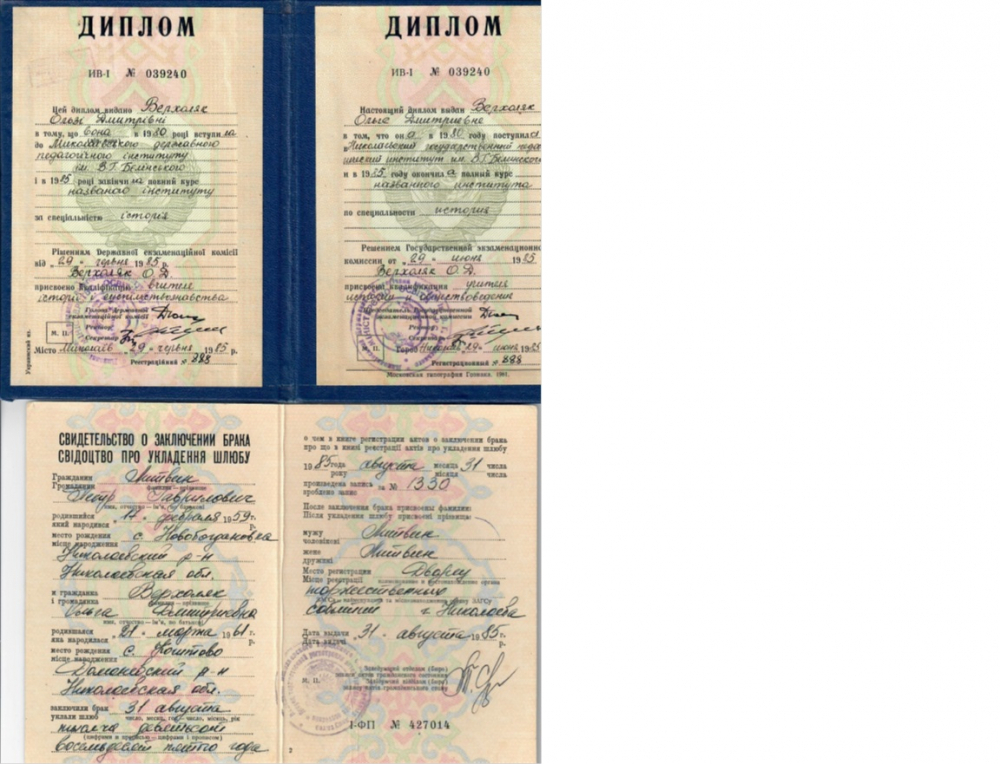 ДИПЛОМ
ИВ-I № 039240
Цей диплом видано Верхоляк
Ользі Дмитрівні
в тому, що вона в 1980 році вступила
до Миколаївського державного
педагогічного інституту
ім. В.Г. Бєлінського
і в 1985 році закінчила повний курс
названого інституту
за спеціальністю історія
Рішенням Державної екзаменаційної комісії
від „29“ червня 1985 р.
Верхоляк О.Д.
присвоєно кваліфікацію вчителя
історії і суспільствознавства
Голова Державної
екзаменаційної комісії
Ректор
Секретар
М. П.
Місто Миколаїв „29“ червня 1985 р.
Реєстраційний № 288
Украинский яз.
ДИПЛОМ
ИВ-I № 039240
Настоящий диплом выдан Верхоляк
Ольге Дмитриевне
в том, что она в 1980 году поступила
в Николаевский государственный педаго
гический институт им. В.Г. Белинского
и в 1985 году окончила полный курс
названного института
по специальности история
Решением Государственной экзаменационной
комиссии от „29“ июня 1985
Верхоляк О.Д.
присвоена квалификация учителя
истории и обществоведения
Председатель Государственной
экзаменационной комиссии
Ректор
Секретарь
М. П.
Город Николаев 29 июня 1985
Регистрационный № 288
Московская типография Гознака. 1981.
СВИДЕТЕЛЬСТВО О ЗАКЛЮЧЕНИИ БРАКА
СВІДОЦТВО ПРО УКЛАДЕННЯ ШЛЮБУ
Гражданин
Громадянин Литвин
фамилия — прізвище
Петр Гаврилович
имя, отчество — ім'я, по батькові
родившийся
який народився „17“ февраля 1959 г.
место рождения
місце народження с. Новобогдановка
Николаевский р-н
Николаевская обл.
и гражданка
і громадянка Верхоляк
фамилия — прізвище
Ольга Дмитриевна
имя, отчество — ім'я, по батькові
родившаяся
яка народилася „21“ марта 1961 г.
место рождения
місце народження с. Коштово
Доманевский р-н
Николаевская обл.
заключили брак
уклали шлюб 31 августа
число, месяц, год — число, місяць, рік
тысяча девятьсот
(цифрами и прописью — цифрами і прописом)
восемьдесят пятого года
о чем в книге регистрации актов о заключении брака
про що в книзі реєстрації актів про укладення шлюбу
1985 года
року августа месяца
місяця 31 числа
числа
произведена запись
зроблено запис за № 1330
После заключения брака присвоены фамилии:
Після укладення шлюбу присвоєні прізвища:
мужу
чоловікові Литвин
жене
дружині Литвин
Место регистрации
Місце реєстрації Дворец
торжественных
событий г. Николаева
Дата выдачи
Дата видачі „31“ августа 1985 г.
р.
М. П.
Заведующий отделом (бюро)
записи актов гражданского состояния
Завідуючий відділом (бюро)
запису актів громадянського стану
I-ФП № 427014
2